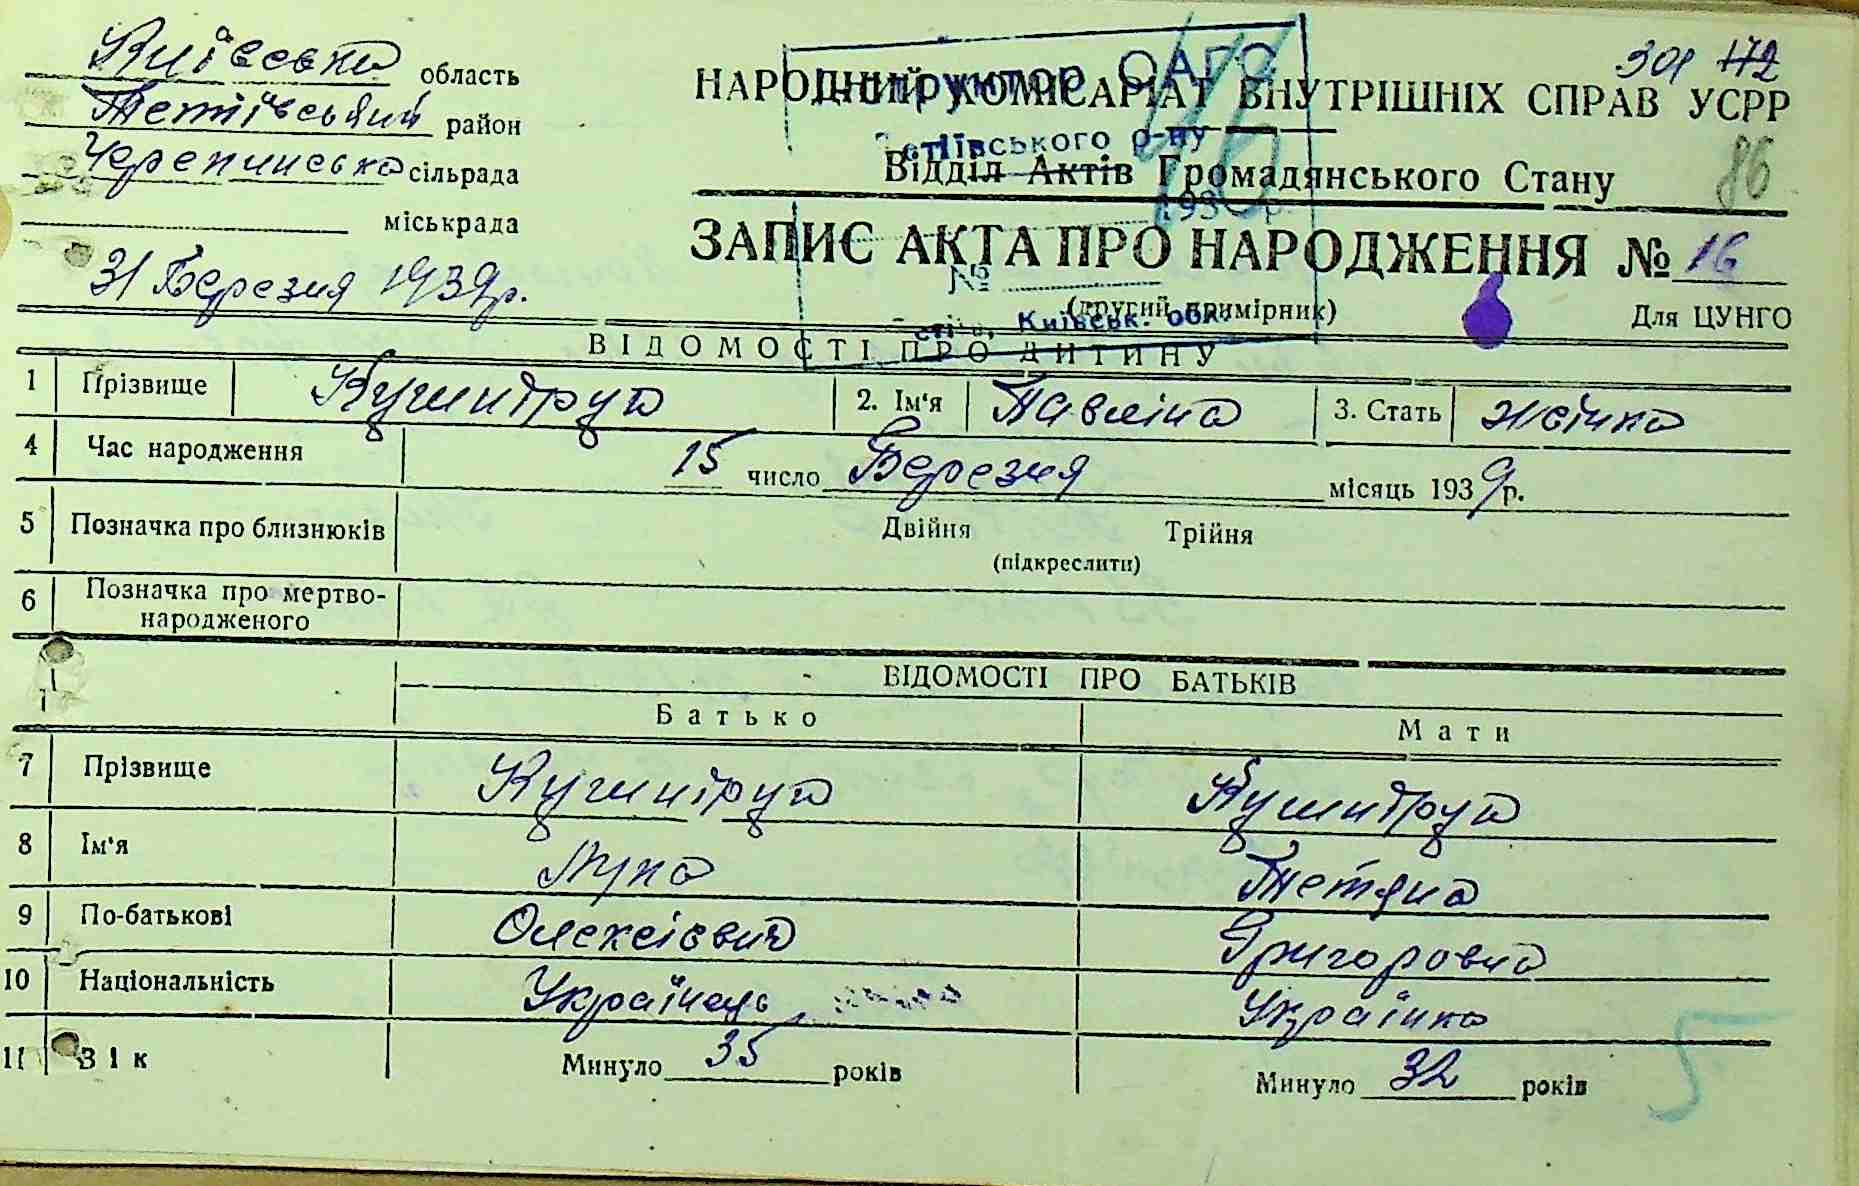 Київська область
Тетіївський район
Черепинська сільрада
міськрада
31 Березня 1939р.
301 172
НАРОДНИЙ КОМІСАРІАТ ВНУТРІШНІХ СПРАВ УСРР
Відділ Актів Громадянського Стану
86
ЗАПИС АКТА ПРО НАРОДЖЕННЯ № 16
(другий примірник)
Для ЦУНГО
Інструктор ОАГС
Тетіївського р-ну
193 р.
№
Київськ. обл.
ВІДОМОСТІ ПРО ДИТИНУ
1 Прізвище Кушнірук 2. Ім'я Павліна 3. Стать жінка
4 Час народження 15 число Березня місяць 1939р.
5 Позначка про близнюків Двійня Трійня
(підкреслити)
6 Позначка про мертво-
народженого
ВІДОМОСТІ ПРО БАТЬКІВ
Батько Мати
7 Прізвище Кушнірук Кушнірук
8 Ім'я Лука Тетяна
9 По-батькові Олексієвич Григоровна
10 Національність Українець Українка
11 Вік Минуло 35 років Минуло 32 років
5